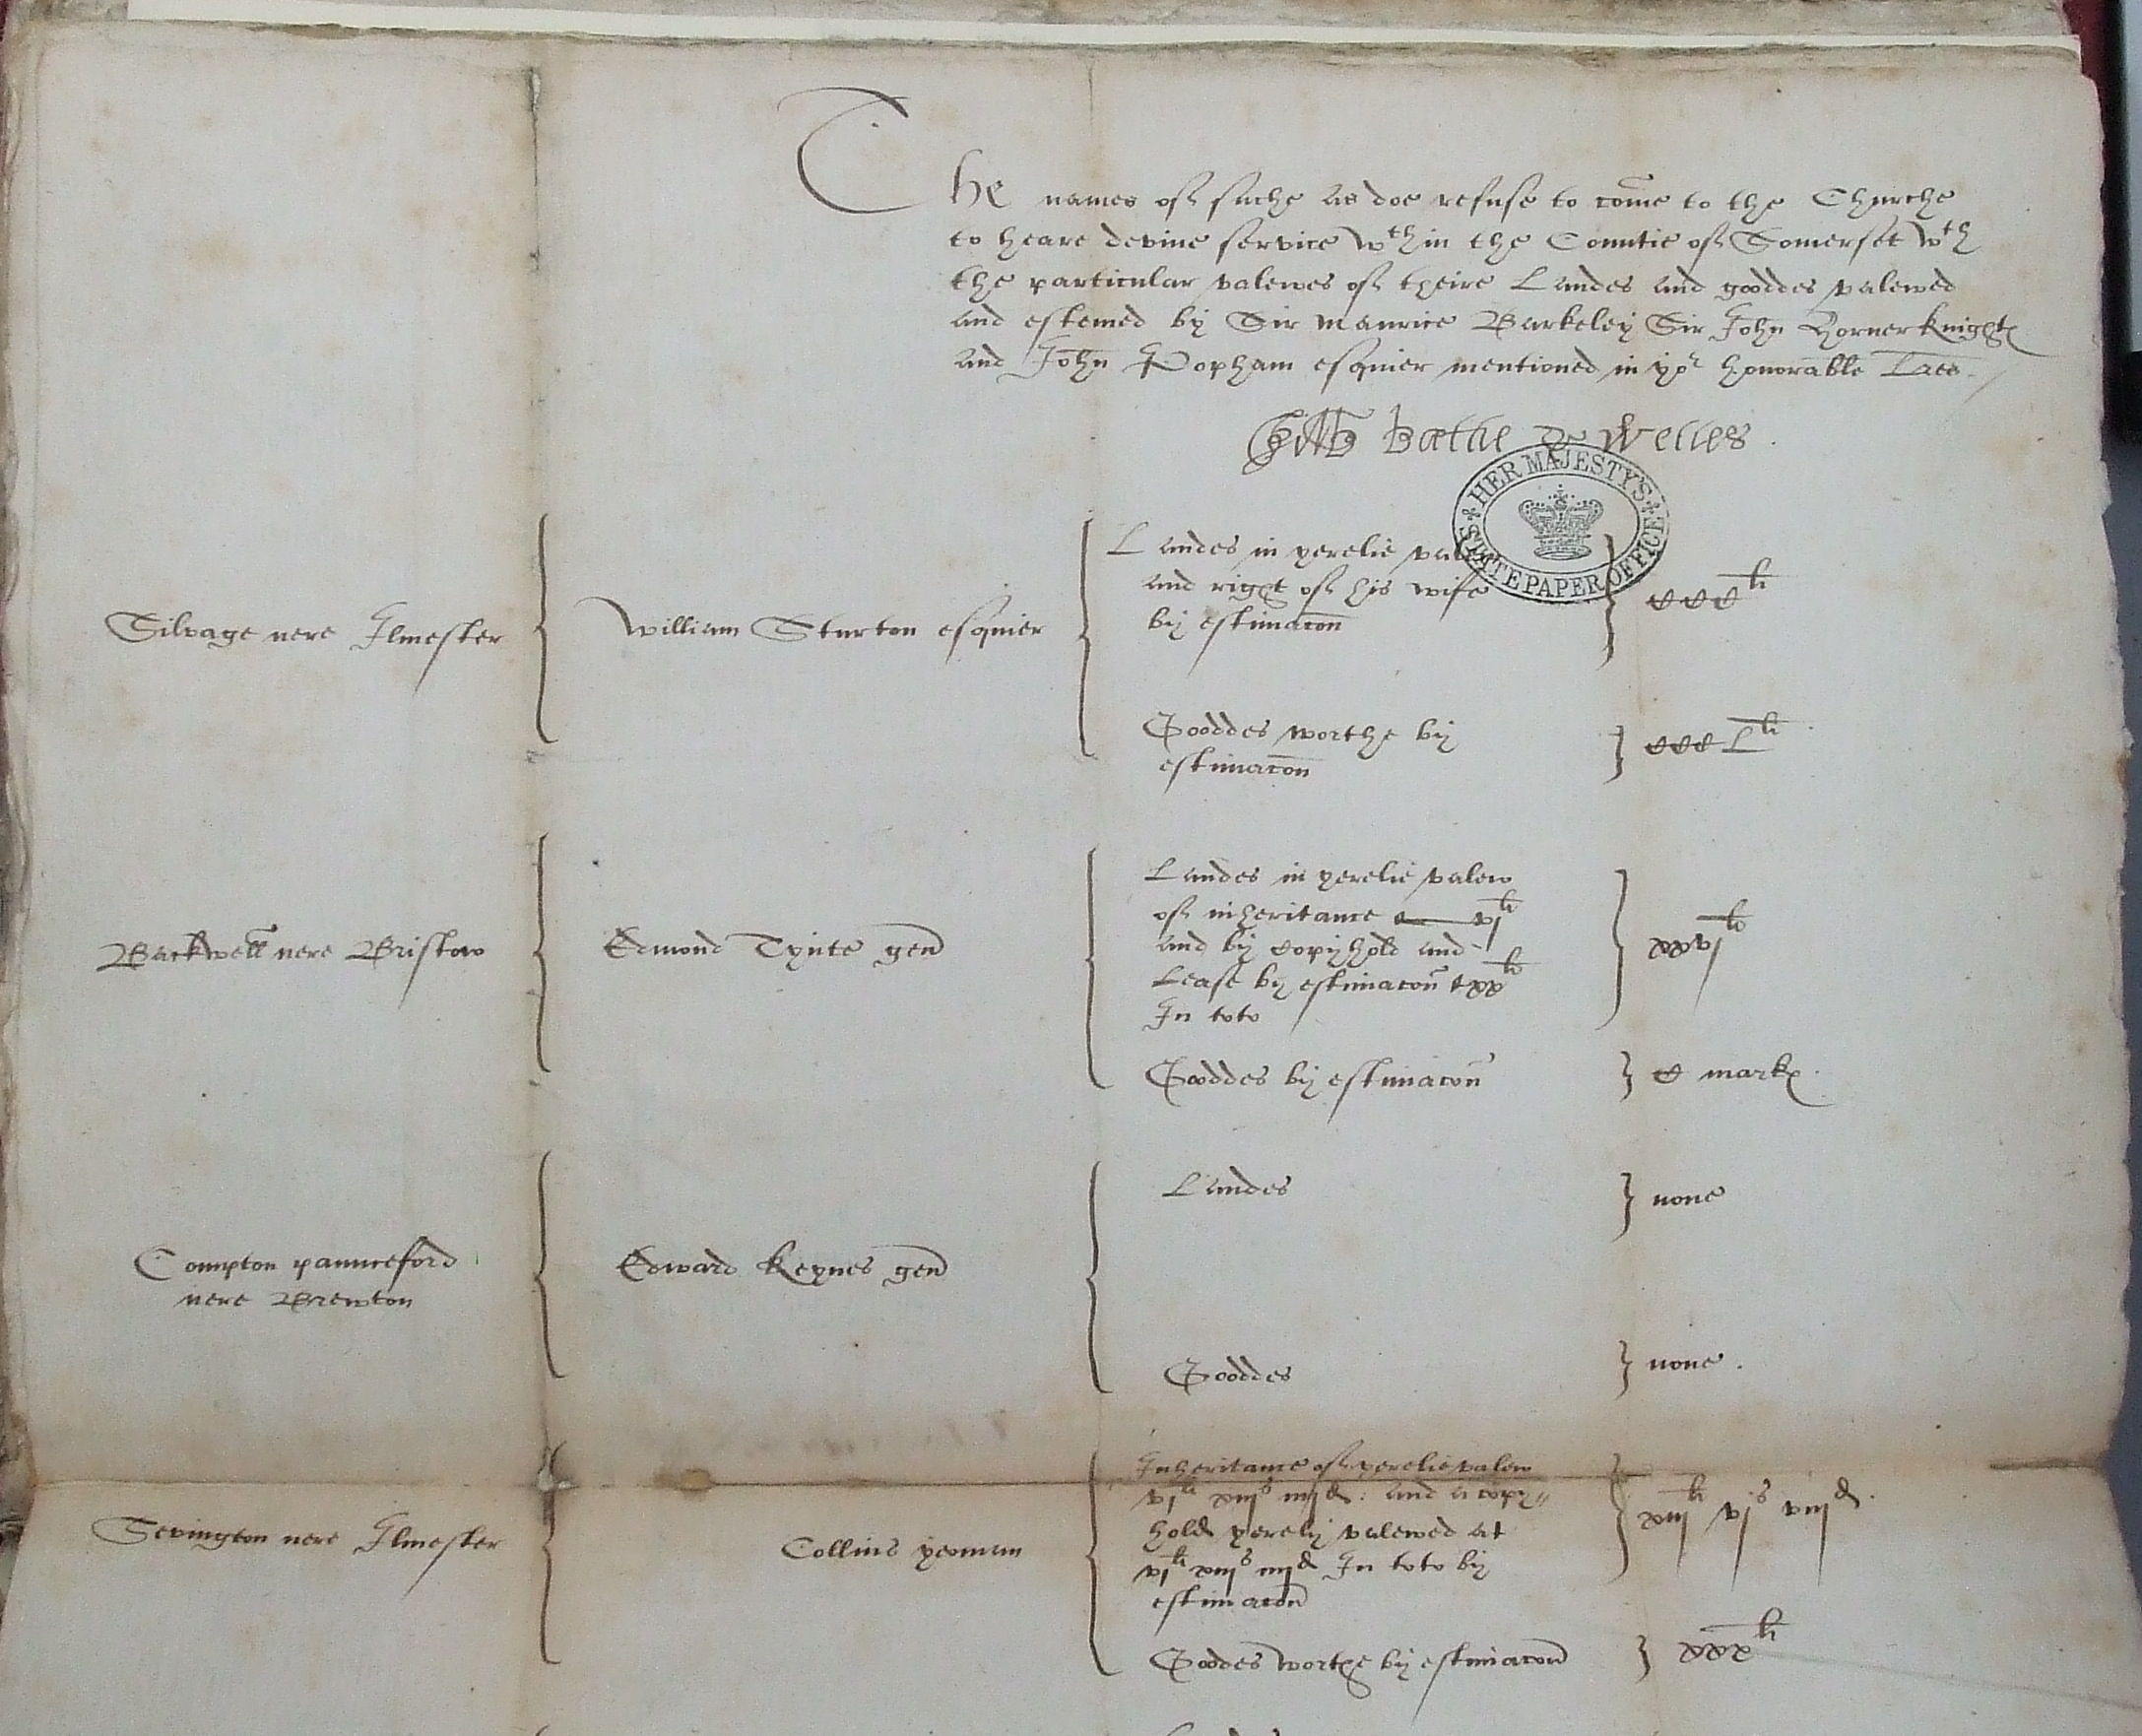 The names of suche as doe refuse to come to the Churche
to heare devine service wth in the Countie of Somerset wth
the particular valewes of theire Landes and gooddes valewed
and estemed by Sir Maurice Barkeley Sir John Horner knight
and John Popham esquier mentioned in yor honorable Lres.
Gilb Bathe & Welles.
HER MAJESTY'S
STATE PAPER OFFICE
Silvage nere Ilmester
William Sturton esquier
Landes in yerelie
and right of his wife
by estimacon
CCCli
Gooddes worthe by
estimacon
CCCLli
Backwell nere Bristow
Edmond Tynte gen
Landes in yerelie valew
of inheritance vjli
and by Copyhold and
Lease by estimacon xxli
In toto
xxvjli
Gooddes by estimacon
C mark
Compton paunceford
nere Brewton
Edward Keynes gen
Landes
none
Gooddes
none.
Sevington nere Ilmester
Collins yeoman
Inheritance of yerelie valew
vjli xiijs iiijd. and a copy=
hold yerely valewed at
vjli xiijs iiijd In toto by
estimacon
xiijli vjs viijd.
Goodes worthe by estimacon
xxxli